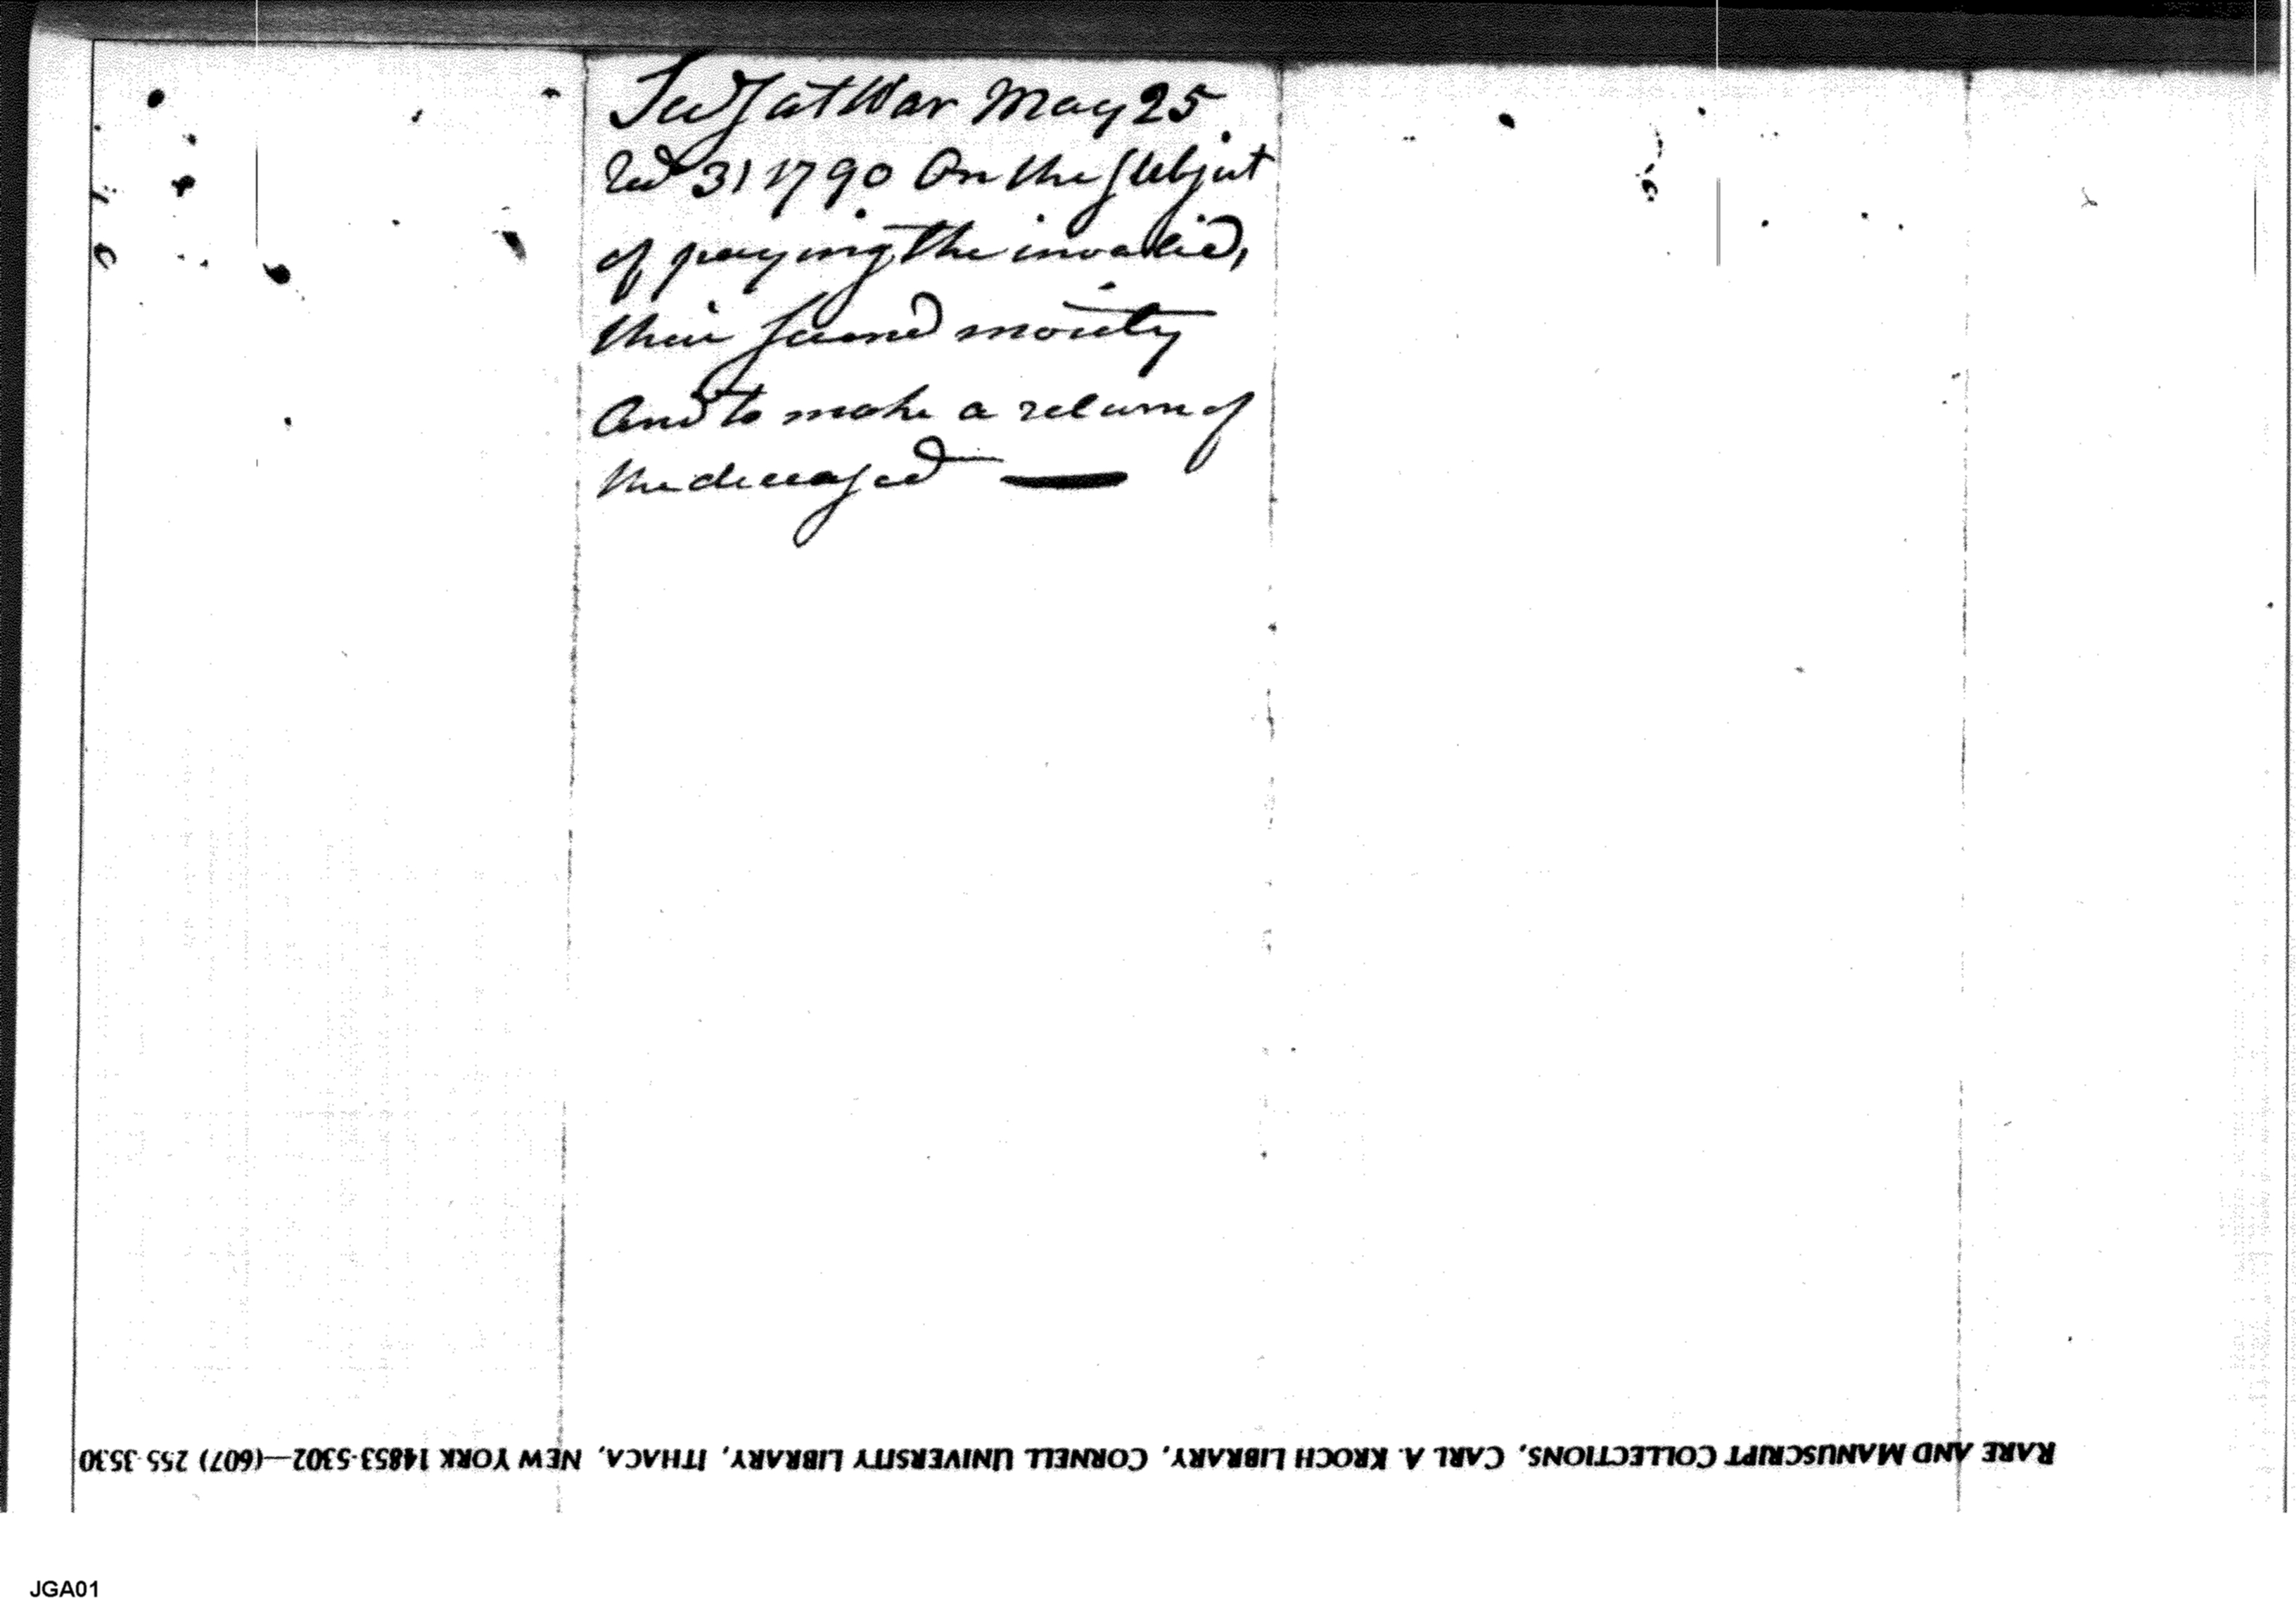 Secy at War May 25
Recd 31 1790 On the Subject
of paying the invalid,
their second moiety
And to make a return of
the deceased —
RARE AND MANUSCRIPT COLLECTIONS, CARL A. KROCH LIBRARY, CORNELL UNIVERSITY LIBRARY, ITHACA, NEW YORK 14853-5302—(607) 255-3530
JGA01